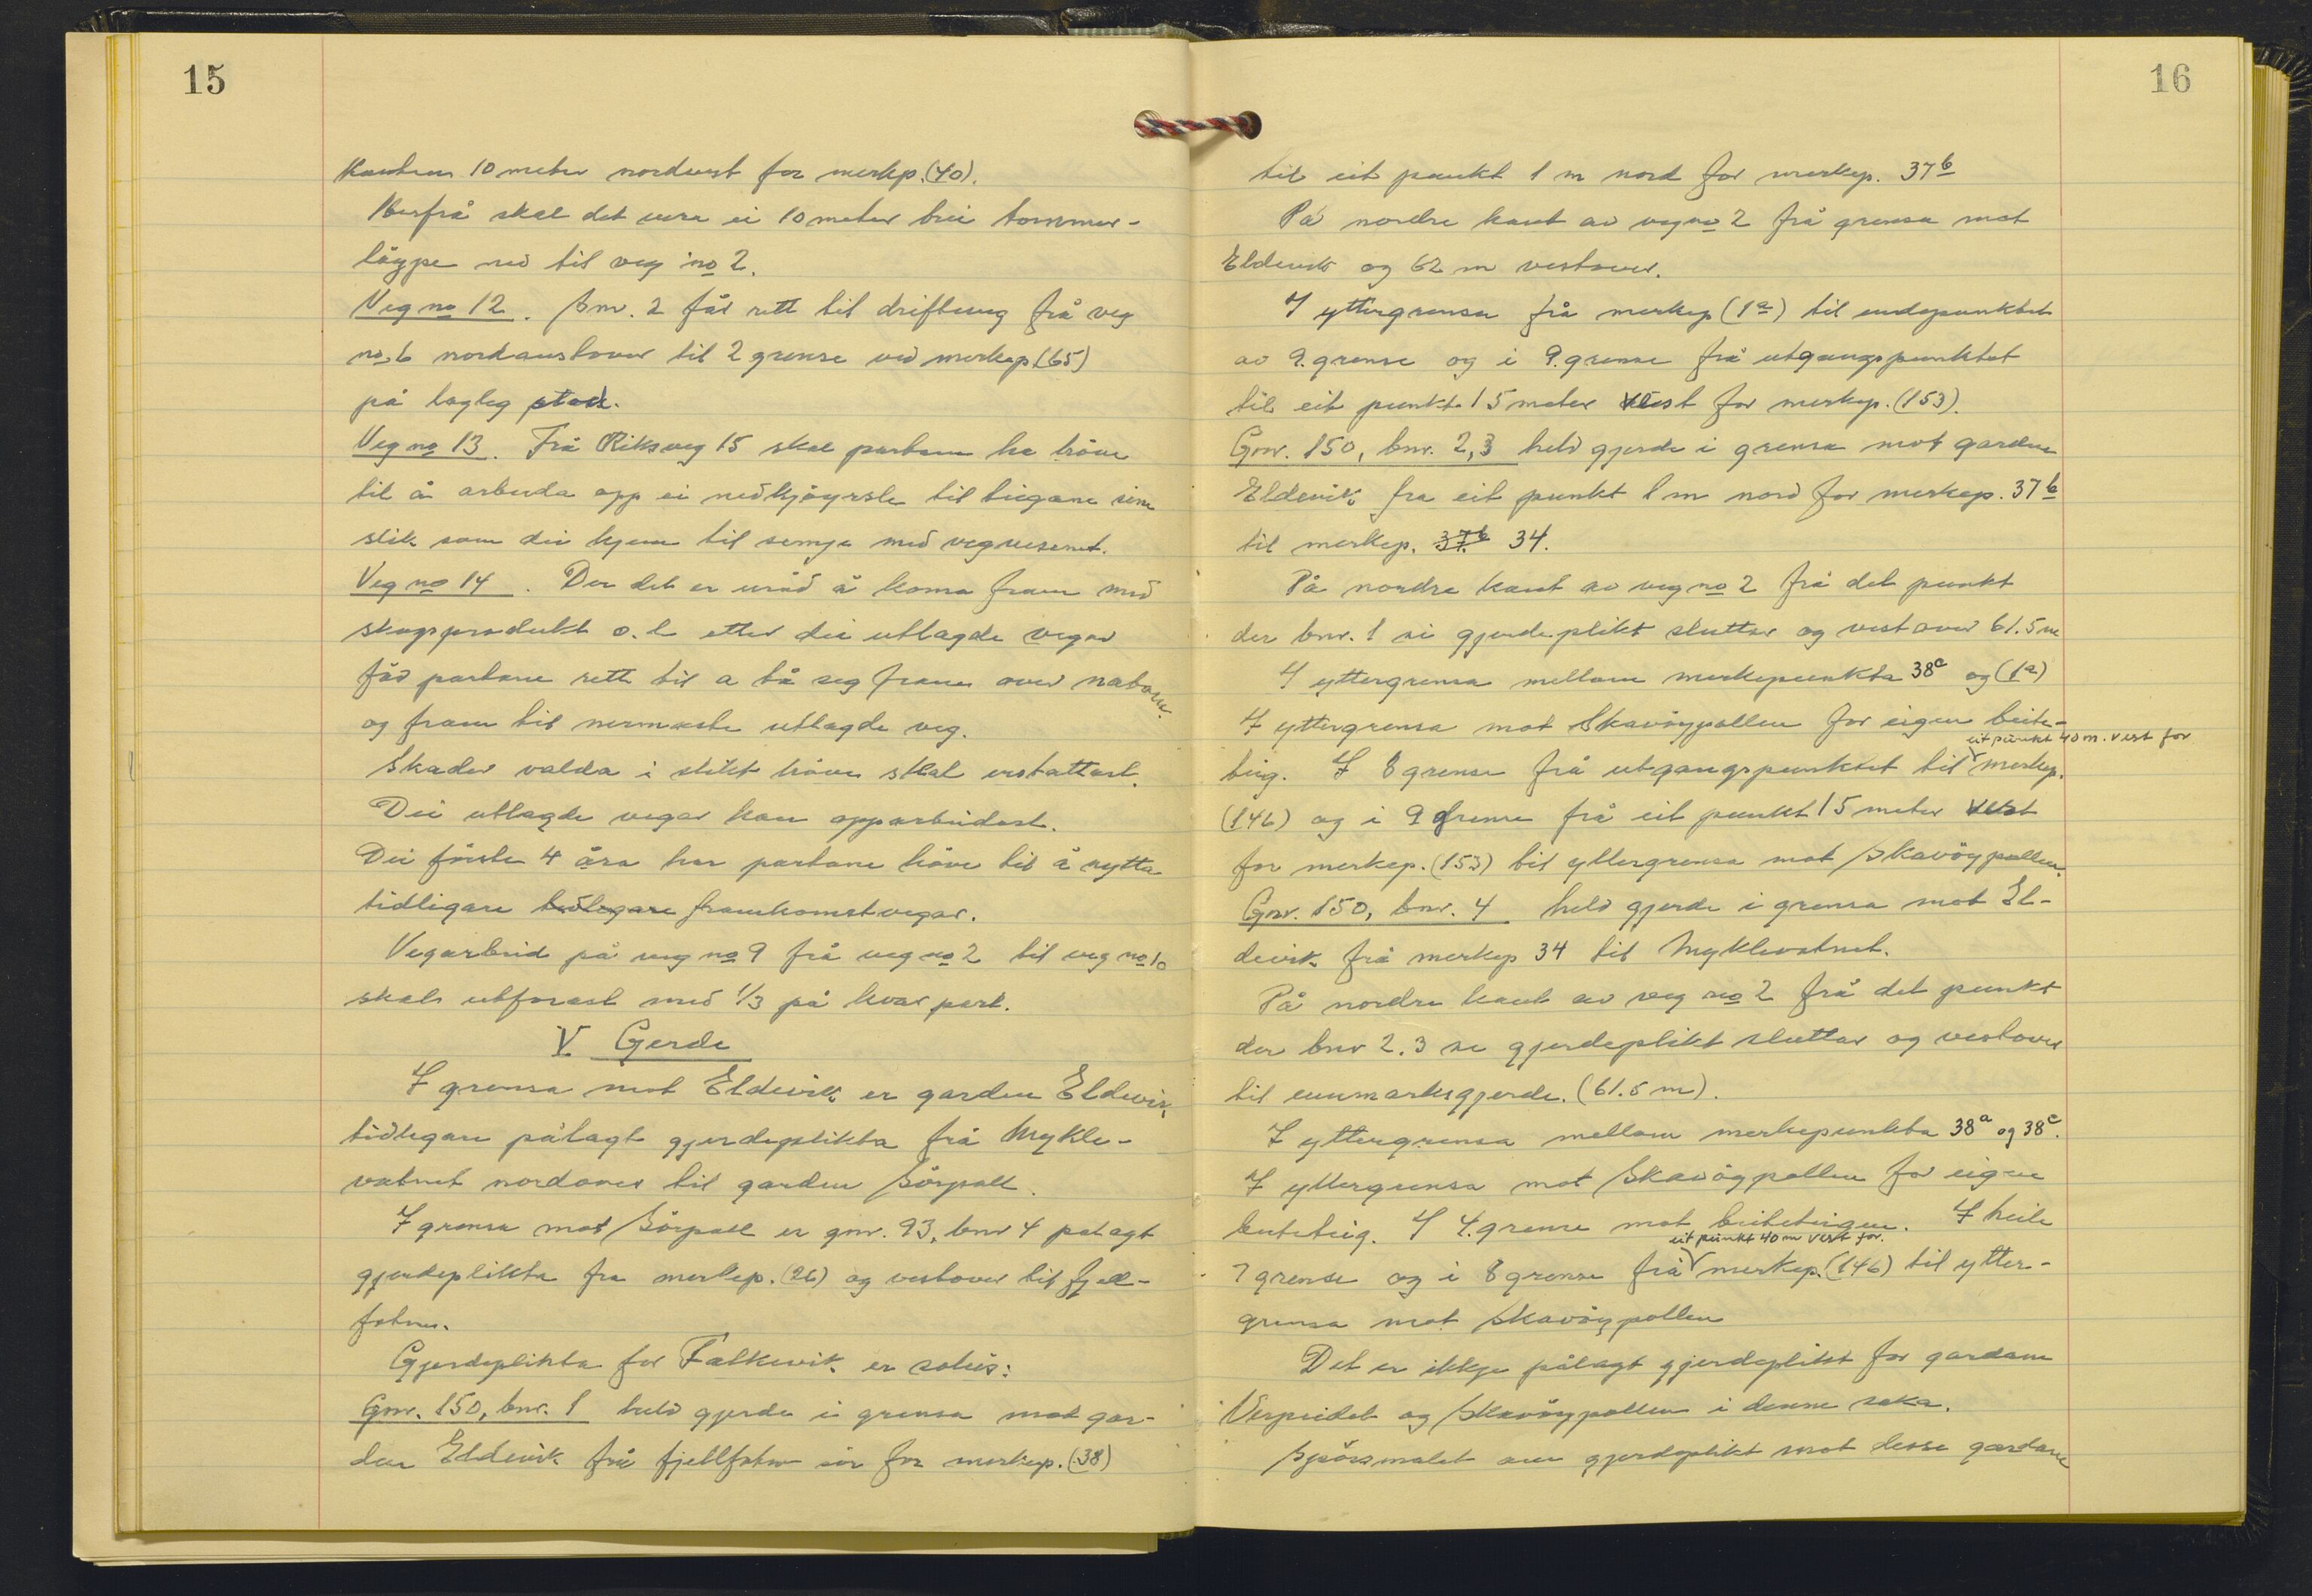 15
kanten 10 meter nordvest for merkp. (40).
Herfrå skal det vera ei 10 meter brei tømmer-
løype ned til veg no 2.
Veg no 12. Bnr. 2 får rett til driftsveg frå veg
no. 6 nordaustover til 2 grense ved merkep (65)
på lagleg stad.
Veg no 13. Frå Riksveg 15 skal partane ha høve
til å arbeida opp ei nedkjøyrsle til teigane sine
slik som dei kjem til semja med vegvesenet.
Veg no 14. Der det er uråd å koma fram med
skogsprodukt o.l. etter dei utlagde vegar
får partane rett til a ta seg fram over naboen
og fram til nermaste utlagde veg.
Skader valda i slikt høve skal erstattast.
Dei utlagde vegar kan opparbeidast.
Dei første 4 åra har partane høve til å nytta
tidligare tidlegare framkomstvegar.
Vegarbeid på veg no 9 frå veg no 2 til veg no 10
skal utførast med 1/3 på kvar part.
V. Gerde
I grensa mot Eldevik er garden Eldevik
tidlegare pålagt gjerdeplikta frå Mykle-
vatnet nordover til garden Sørpoll.
I grensa mot Sørpoll er gnr. 93, bnr 4 palagt
gjerdeplikta fra merkep. (26) og vestover til fjell-
foten.
Gjerdeplikta for Falkevik er soleis:
Gnr. 150, bnr. 1 held gjerde i grensa mot gar-
den Eldevik frå fjellfoten sør for merkep. (38)
16
til eit punkt 1 m nord for merkep. 37b
På nordre kant av veg no 2 frå grensa mot
Eldevik og 62 m vestover.
I yttergrensa frå merkep (1a) til endepunktet
av 9. grense og i 9. grense frå utgangspunktet
til eit punkt 15 meter vest for merkep. (153).
Gnr. 150, bnr. 2,3 held gjerde i grensa mot garden
Eldevik fra eit punkt 1 m nord for merkep. 37b
til merkep. 37b 34.
På nordre kant av veg no 2 frå det punkt
der bnr. 1 si gjerdeplikt sluttar og vestover 61.5 m
I yttergrensa mellom merkepunkta 38c og (1a)
I yttergrensa mot Skavøypollen for eigen beite-
teig. I 8 grense frå utgangspunktet til eit punkt 40 m. vest for merkep.
(146) og i 9 grense frå eit punkt 15 meter vest
for merkep. (153) til yttergrensa mot Skavøypollen.
Gnr. 150, bnr. 4 held gjerde i grensa mot El-
devik frå merkep 34 til Myklevatnet.
På nordre kant av veg no 2 frå det punkt
der bnr 2.3 si gjerdeplikt sluttar og vestover
til innmarksgjerde. (61.5 m).
I yttergrensa mellom merkepunkta 38a og 38c.
I yttergrensa mot Skavøypollen for eigen
beiteteig. I 4. grense mot beiteteigen. I heile
7 grense og i 8 grense frå eit punkt 40 m vest for. merkep. (146) til ytter-
grensa mot Skavøypollen
Det er ikkje pålagt gjerdeplikt for gardane
Verpeidet og Skavøypollen i denne saka.
Spørsmalet om gjerdeplikt mot desse gardane